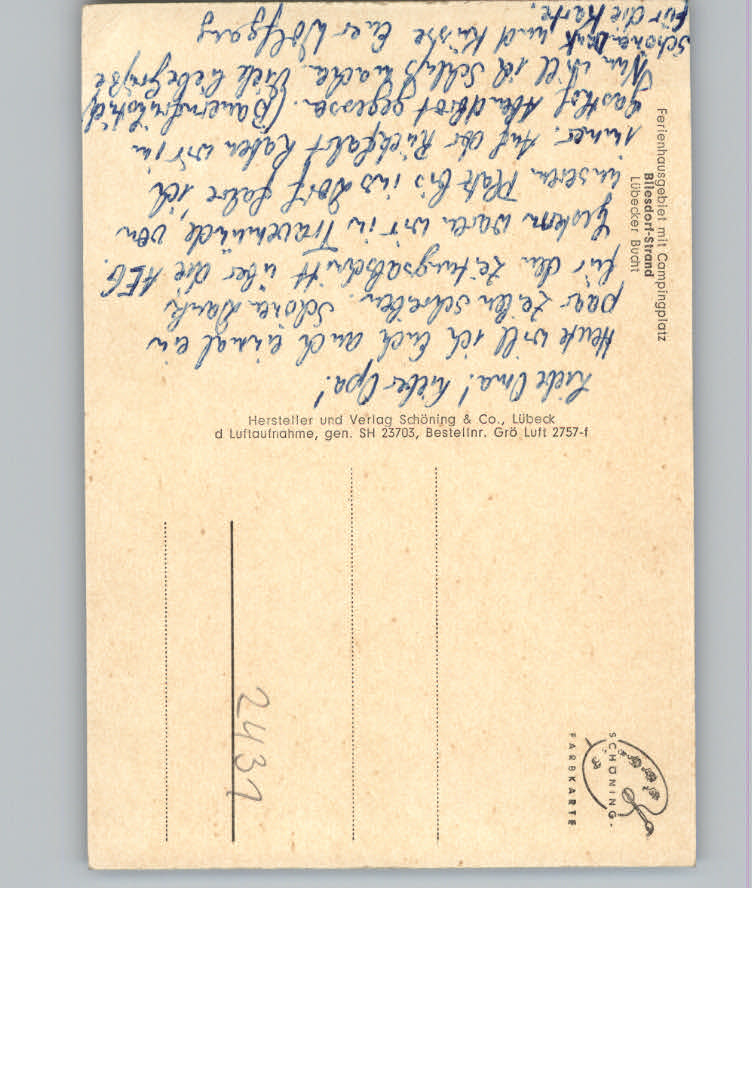 Ferienhausgebiet mit Campingplatz
Bliesdorf-Strand
Lübecker Bucht
Liebe Oma! Lieber Opa!
Heute will ich Euch auch einmal ein
paar Zeilen schreiben. Schönen Dank
für den Zeitungsabschnitt über die AEG.
Gestern waren wir in Travemünde, von
unserem Platz bis ins Dorf fahre ich
immer. Auf der Rückfahrt haben wir im
Gasthof Abendbrot gegessen. (Bauernfrühstück)
Nun will ich Schluß machen. Viele liebe Grüße
und Küsse Euer Wolfgang
Schönen Dank
für die Karte.
Hersteller und Verlag Schöning & Co., Lübeck
d Luftaufnahme, gen. SH 23703, Bestellnr. Grö Luft 2757-f
SCHÖNING-
FARBKARTE
2431